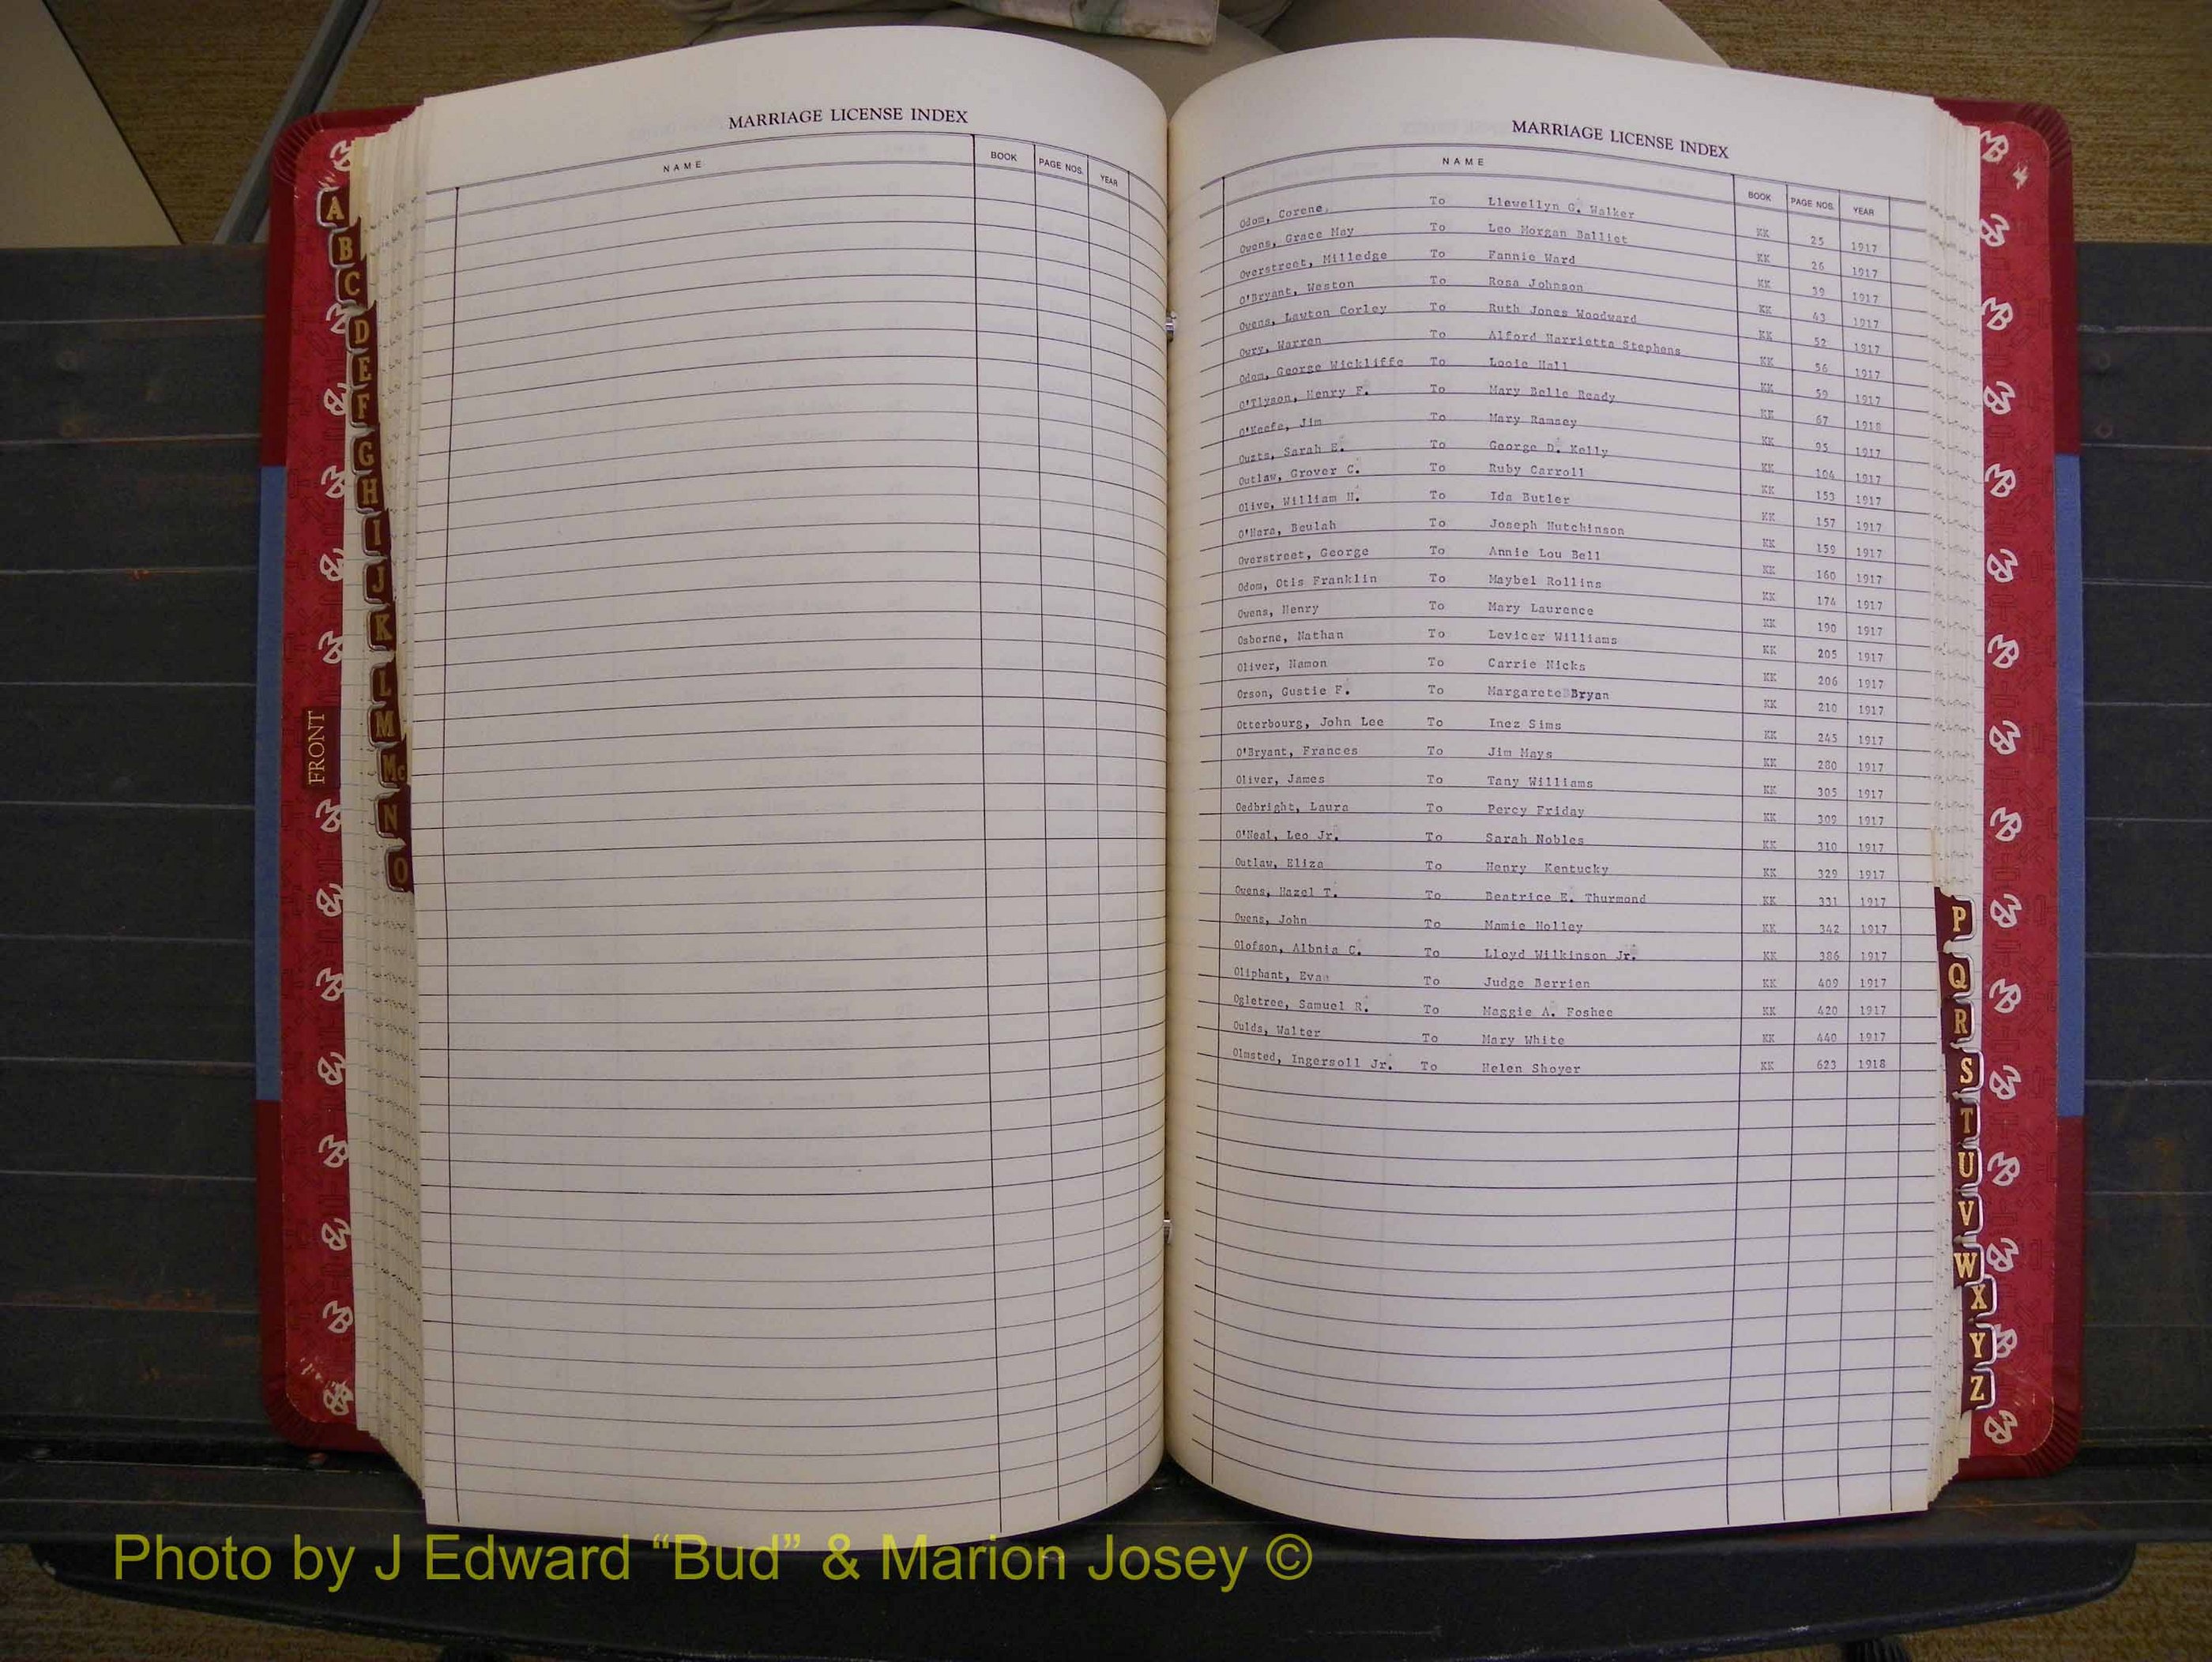 MARRIAGE LICENSE INDEX
NAME BOOK PAGE NOS. YEAR
A
B
C
D
E
F
G
H
I
J
K
L
M
Mc
N
O
FRONT
MARRIAGE LICENSE INDEX
NAME BOOK PAGE NOS. YEAR
Odom, Corene To Llewellyn G. Walker KK 25 1917
Owens, Grace May To Leo Morgan Balliet KK 26 1917
Overstreet, Milledge To Fannie Ward KK 39 1917
O'Bryant, Weston To Rosa Johnson KK 43 1917
Owens, Lawton Corley To Ruth Jones Woodward KK 52 1917
Oury, Warren To Alford Harrietta Stephens KK 56 1917
Odom, George Wickliffe To Looie Hall KK 59 1917
O'Tlyson, Henry F. To Mary Belle Ready KK 67 1918
O'Keefe, Jim To Mary Ramsey KK 95 1917
Ouzts, Sarah E. To George D. Kelly KK 104 1917
Outlaw, Grover C. To Ruby Carroll KK 153 1917
Olive, William H. To Ida Butler KK 157 1917
O'Hara, Beulah To Joseph Hutchinson KK 159 1917
Overstreet, George To Annie Lou Bell KK 160 1917
Odom, Otis Franklin To Maybel Rollins KK 174 1917
Owens, Henry To Mary Laurence KK 190 1917
Osborne, Nathan To Levicer Williams KK 205 1917
Oliver, Namon To Carrie Nicks KK 206 1917
Orson, Gustie F. To Margarete Bryan KK 210 1917
Otterbourg, John Lee To Inez Sims KK 245 1917
O'Bryant, Frances To Jim Mays KK 280 1917
Oliver, James To Tany Williams KK 305 1917
Oedbright, Laura To Percy Friday KK 309 1917
O'Neal, Leo Jr. To Sarah Nobles KK 310 1917
Outlaw, Eliza To Henry Kentucky KK 329 1917
Owens, Hazel T. To Beatrice E. Thurmond KK 331 1917
Owens, John To Mamie Holley KK 342 1917
Olofson, Albnia C. To Lloyd Wilkinson Jr. KK 386 1917
Oliphant, Evan To Judge Berrien KK 409 1917
Ogletree, Samuel R. To Maggie A. Foshee KK 420 1917
Oulds, Walter To Mary White KK 440 1917
Olmsted, Ingersoll Jr. To Helen Shoyer KK 623 1918
P
Q
R
S
T
U
V
W
X
Y
Z
Photo by J Edward “Bud” & Marion Josey ©